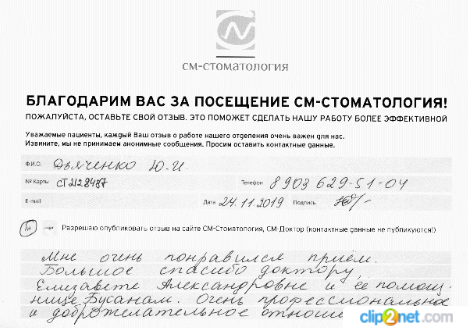 СМ-СТОМАТОЛОГИЯ
БЛАГОДАРИМ ВАС ЗА ПОСЕЩЕНИЕ СМ-СТОМАТОЛОГИЯ!
ПОЖАЛУЙСТА, ОСТАВЬТЕ СВОЙ ОТЗЫВ. ЭТО ПОМОЖЕТ СДЕЛАТЬ НАШУ РАБОТУ БОЛЕЕ ЭФФЕКТИВНОЙ
Уважаемые пациенты, каждый Ваш отзыв о работе нашего отделения очень важен для нас.
Извините, мы не принимаем анонимные сообщения. Просим оставить контактные данные.
Ф.И.О. Дьяченко Ю.И.
№ Карты СТ2128487 Телефон 8 903 629-51-04
E-mail Дата 24.11.2019 Подпись
Разрешаю опубликовать отзыв на сайте СМ-Стоматология, СМ-Доктор (контактные данные не публикуются!)
Мне очень понравился приём.
Большое спасибо доктору,
Елизавете Александровне и её помощ-
нице Бусанам. Очень профессиональное
и доброжелательное отноше
clip2net.com